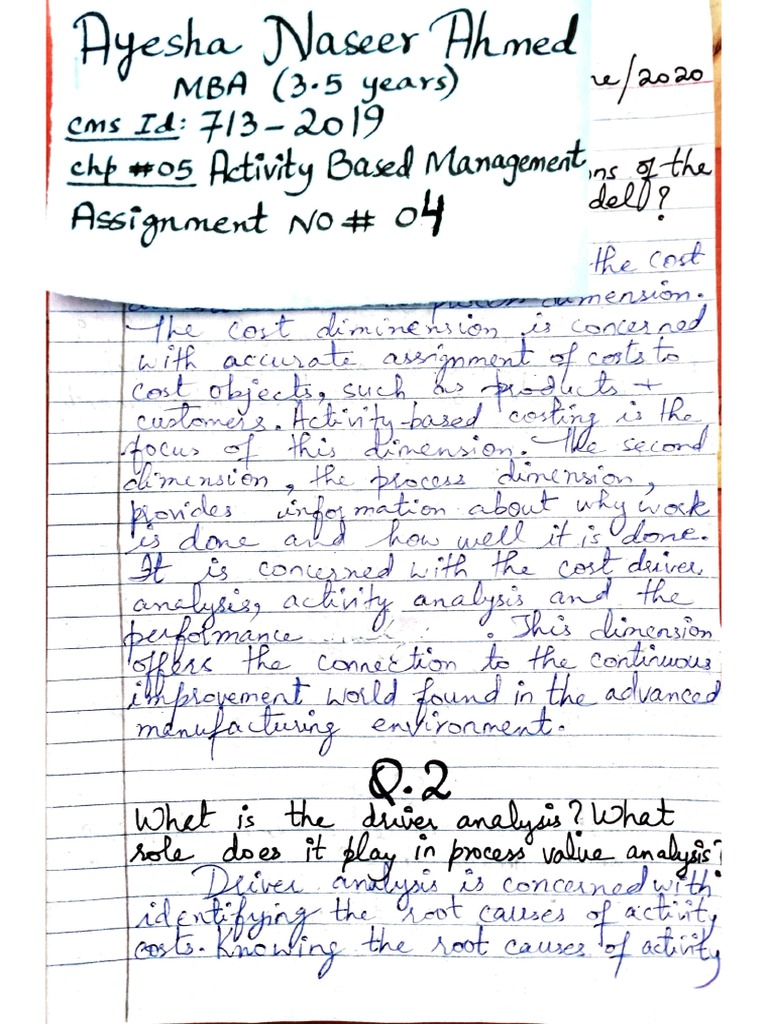 Ayesha Naseer Ahmed
MBA (3.5 years)
cms Id: 713-2019
chp #05 Activity Based Management
Assignment NO # 04
/2020
of the
?
the cost
dimension.
The cost diminension is concerned
with accurate assignment of costs to
cost objects, such as products +
customers. Activity-based costing is the
focus of this dimension. The second
dimension, the process dimension,
provides information about why work
is done and how well it is done.
It is concerned with the cost driver
analysis, activity analysis and the
performance . This dimension
offers the connection to the continuous
improvement world found in the advanced
manufacturing environment.
Q.2
What is the driver analysis? What
role does it play in process value analysis?
Driver analysis is concerned with
identifying the root causes of activity
costs. Knowing the root causes of activity